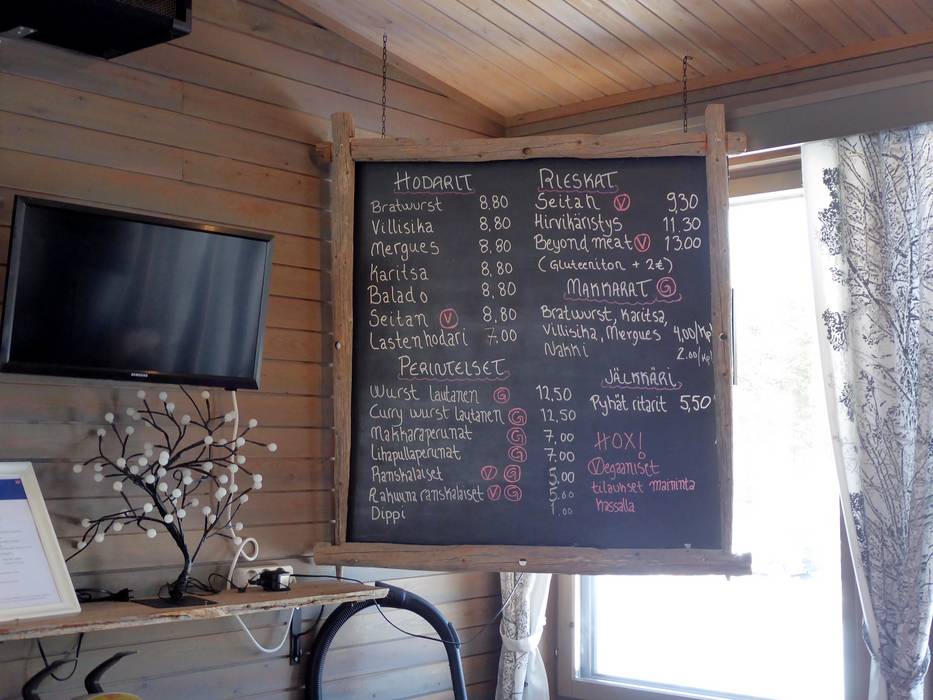 HODARIT
Bratwurst 8,80
Villisika 8,80
Mergues 8,80
Karitsa 8,80
Balado 8,80
Seitan V 8.80
Lastenhodari 7.00
PERINTEISET
Wurst lautanen G 12,50
Curry wurst lautanen G 12,50
Makkaraperunat G 7,00
Lihapullaperunat G 7.00
Ranskalaiset V G 5.00
Rakuunaranskalaiset V G 5.60
Dippi 1,00
RIESKAT
Seitan V 9,30
Hirvikäristys 11.30
Beyond meat V 13.00
(Gluteeniton + 2€)
MAKKARAT G
Bratwurst, Karitsa,
Villisika, Mergues 4,00/kpl
Nakki 2.00/kpl
JÄLKKÄRI
Pyhät ritarit 5,50
HOX!
Vegaaniset
tilaukset maininta
kassalla
SAMSUNG